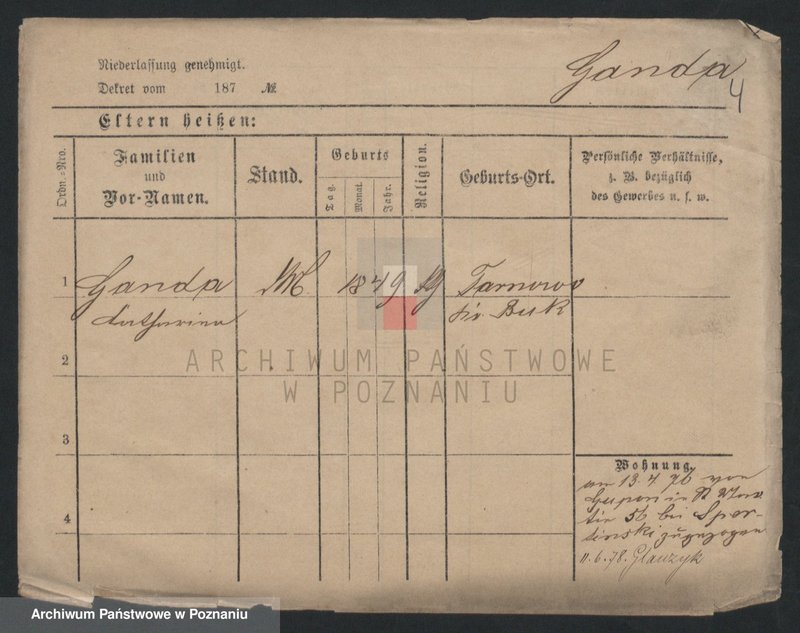 Niederlassung genehmigt.
Dekret vom 187 №
Ganda
4
Eltern heißen:
Ordn.-Nro.
Familien
und
Vor-Namen.
Stand.
Geburts
Tag.
Monat.
Jahr.
Religion.
Geburts-Ort.
Persönliche Verhältnisse,
z. B. bezüglich
des Gewerbes u. s. w.
1 Ganda M. 1849 Tarnowo
Catharina Kr. Buk
2
3
4
Wohnung.
am 13 4 76 von
in St.
56 bei
zugezogen
11.6.78.
ARCHIWUM PAŃSTWOWE
W POZNANIU
Archiwum Państwowe w Poznaniu